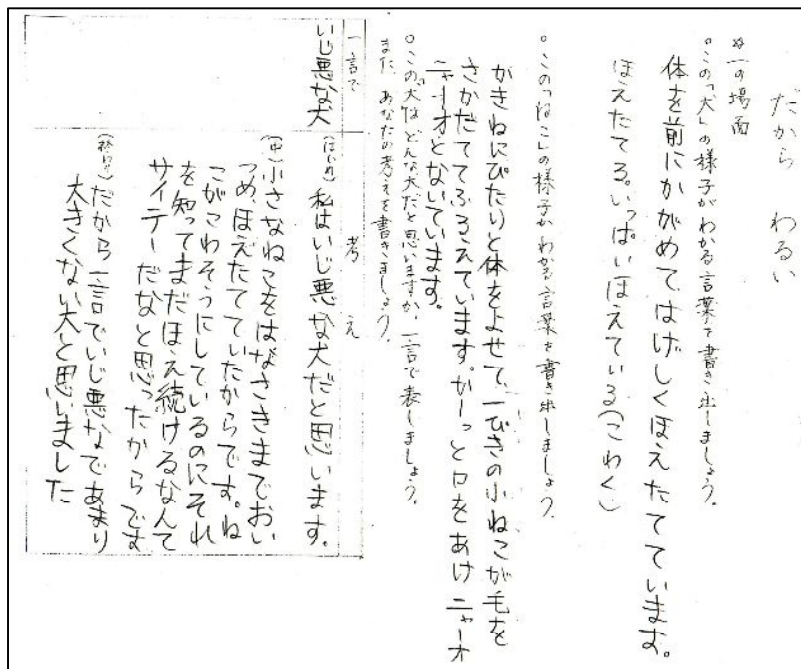 だから わるい
一の場面
○この「犬」の様子がわかる言葉を書き出しましょう。
体を前にかがめて、はげしくほえたてています。
ほえたてる。いっぱいほえている(こわく)
○この「ねこ」の様子がわかる言葉を書き出しましょう。
がきねにぴたりと体をよせて、一ぴきの小ねこが毛を
さかだててふるえています。かーっと口をあけニャーオ
ニャーオとないています。
○この「犬」はどんな犬だと思いますか、一言で表しましょう。
また、あなたの考えを書きましょう。
一言で
いじ悪な犬
考え
(はじめ)私はいじ悪な犬だと思います。
(中)小さなねこをはなさきまでおい
つめ、ほえたてていたからです。ね
こがこわそうにしているのにそれ
を知ってまだほえ続けるなんて
サイテーだなと思ったからです
(終わり)だから一言でいじ悪なであまり
大きくない犬と思いました